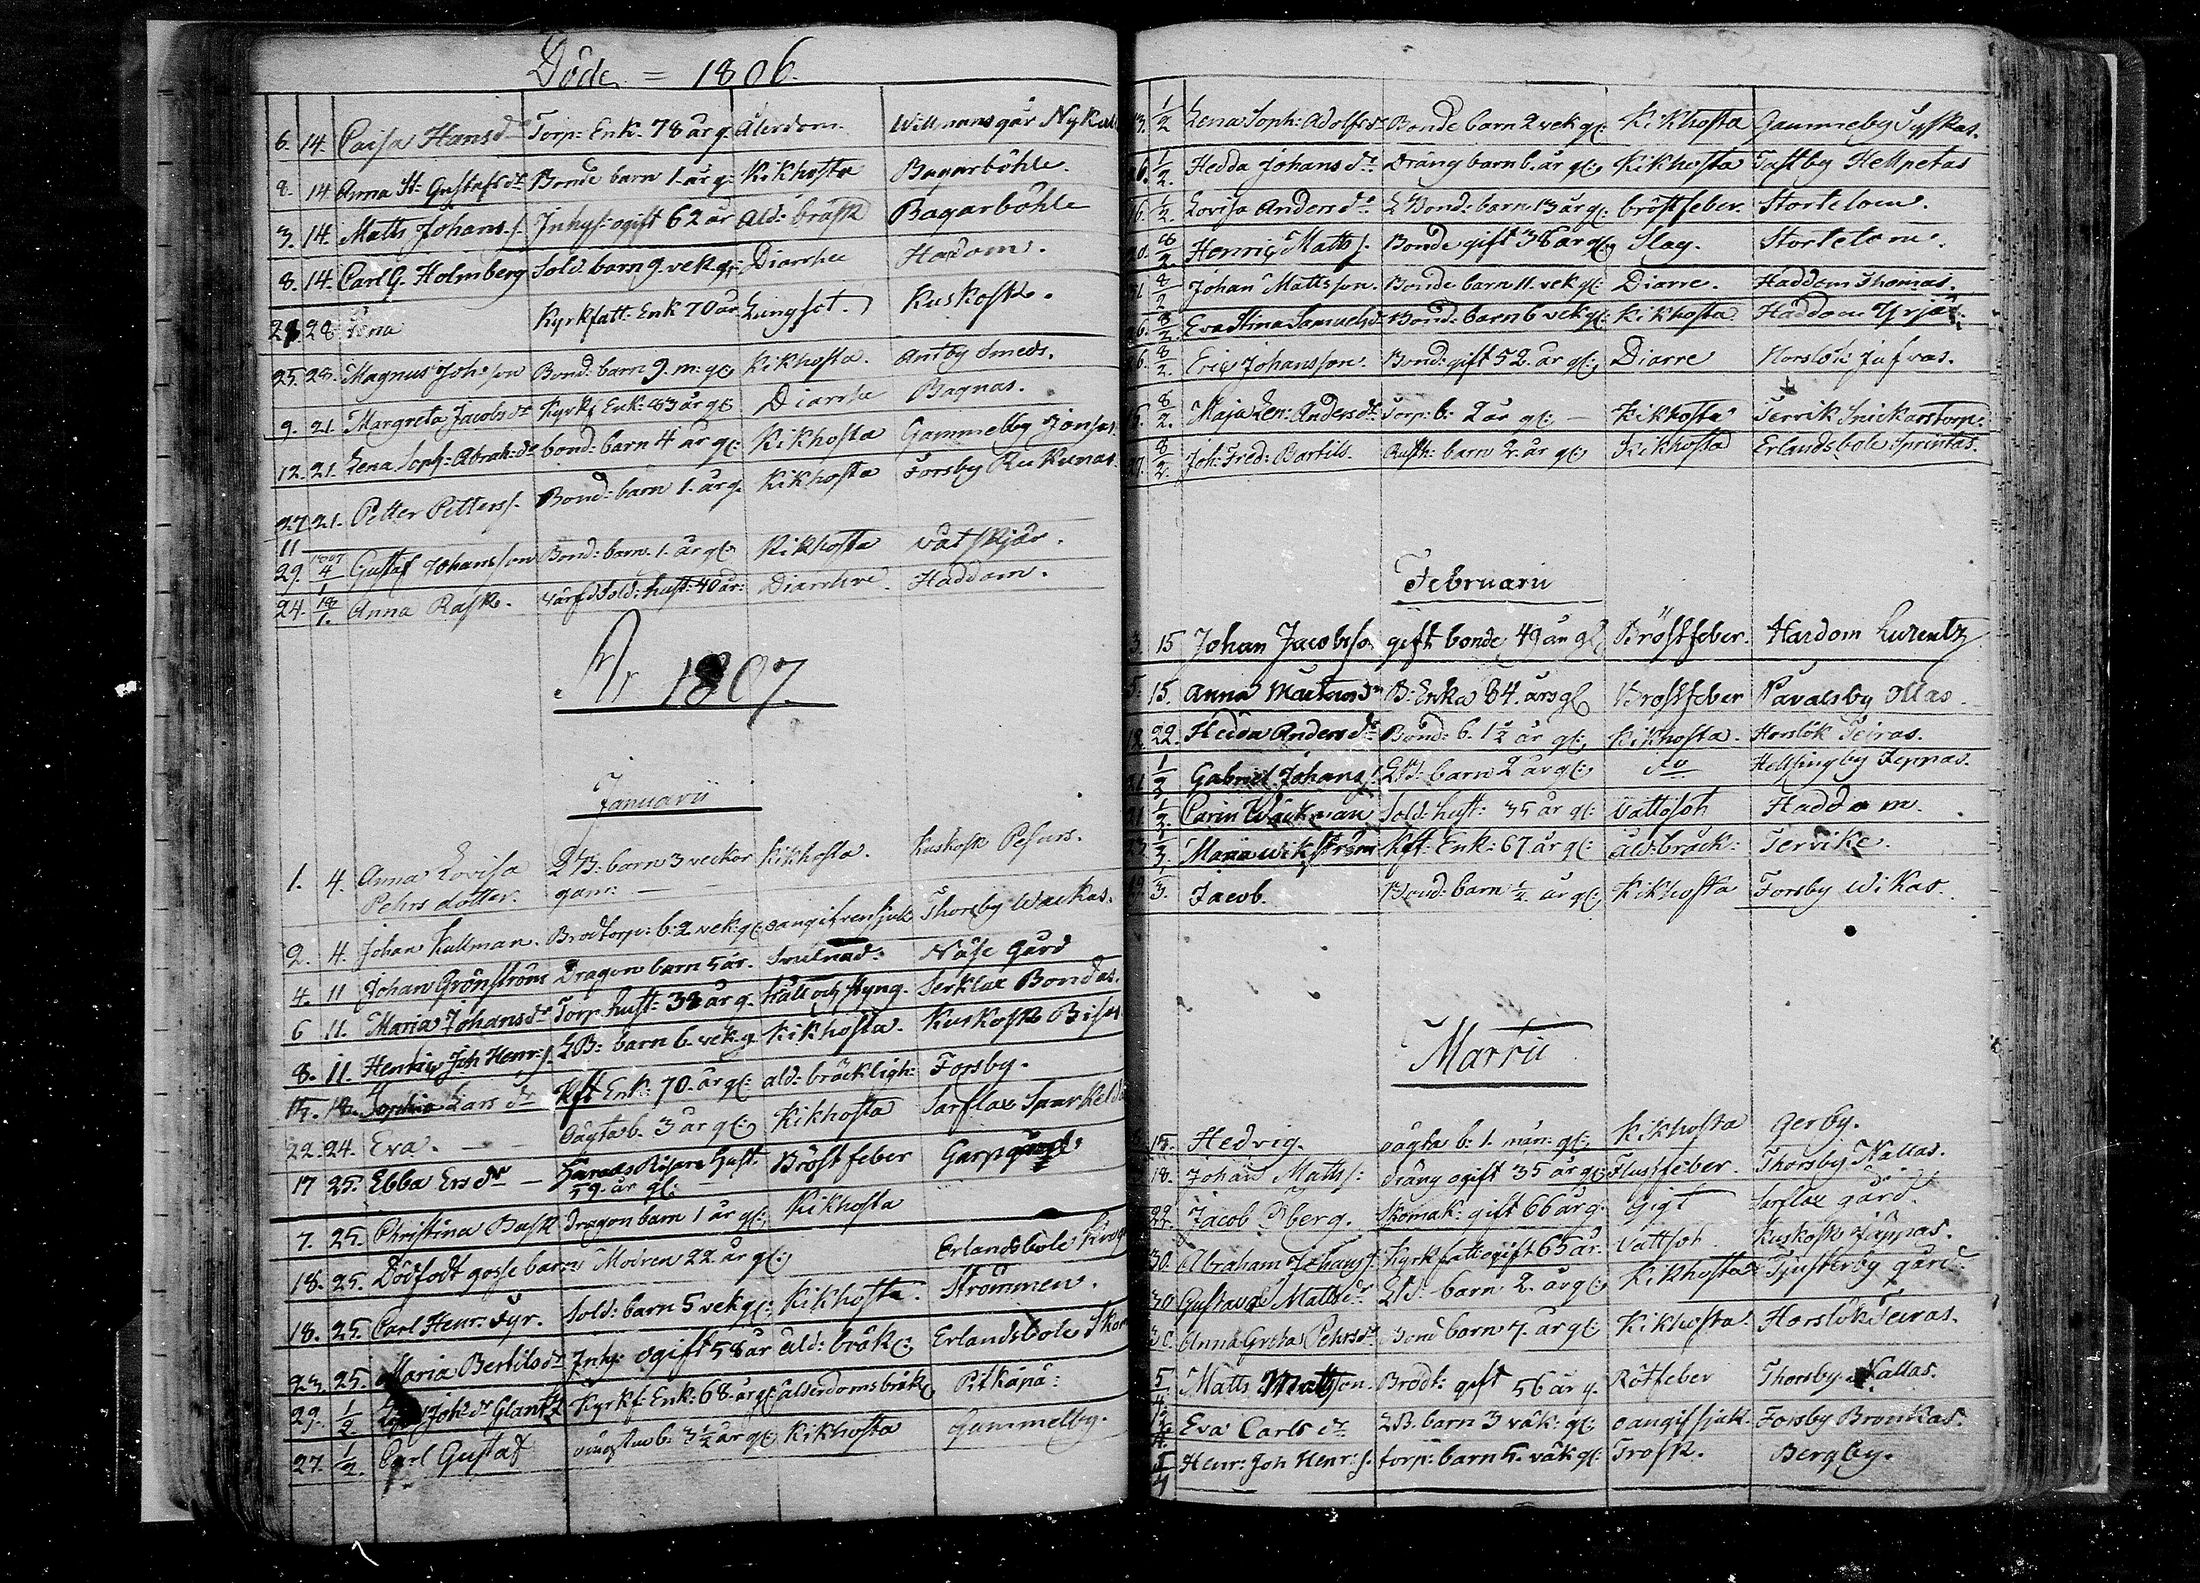 Döde = 1806.
6. 14. Caisa Hansd:r Torp: Enk. 78 år g. Ålerdom. Willmansgår Nykull
8. 14. Anna H: Gustafsd:r Bonde barn 1. år g: Kikhosta Bagarböhle.
3. 14. Matts Johans s. Inhys: ogift 62 år Ald: bräsk Bagarböhle
8. 14. Carl G. Holmberg Sold. barn 9. vek g: Diarrhee Hardom.
28. Lena Kyrkfatt: Enk 70 år Lungsot. Kuskosk.
25. 28. Magnus Joh:sson Bond: barn 9. m: gl: Kikhosta. Antby Smeds.
9. 21. Margreta Jacobsd:r Kyrkf Enk: 83 år gl: Diarrhe Bagnas.
12. 21. Lena Soph: Abrah:d:r bond: barn 4 år gl: Kikhosta Gammelby Jonsas
27. 21. Petter Petterss. Bond: barn 1. år g. Kikhosta Forsby Kukunas.
11
29. 4/1 Gustaf Johansson Bond: barn 1. år gl: Kikhosta Våtskjär.
24. 18/1. Anna Rask. värfd Sold: hust: 40 år: Diarrhee Haddom.
År 1807.
Januarii
1. 4. Anna Lovisa LB: barn 3 veckor Kikhosta. Kuskosk Pesurs.
Pehrs dotter. gam:
2. 4. Johan Kullman. Brodtorp: b: 2 vek: gl: oangifven sjuk Thorsby Wackas.
4. 11 Johan Grönström Dragon barn 5 år. Svulnad: Näse Gård
6 11. Maria Johansd:r Torp hust: 38 år g. håll och styng. Serklax Bondas.
8. 11. Henric Joh Henr: s. LB: barn 6. vek: g. Kikhosta. Kuskosk Bisas
14. 18. Sophia Lars d:r Kft Enk: 70. år gl: ald: bräckligh: Forsby.
22. 24. Eva. oägta b. 3 år gl: Kikhosta Sarflax
17 25. Ebba Ersd:r Hust. Bröstfeber Garpgård
59. år gl:
7. 25. Christina Bask Dragon barn 1 år gl: Kikhosta
18. 25. Dödfödt gosse barn Modren 22 år gl: Erlandsböle
18. 25. Carl Henr: Fyr. Sold: barn 5 vek gl: Kikhosta. Strömmen.
23. 25. Maria Bertilsd:r Inhy: ogift 58 år ald: bräkl: Erlandsböle Skom
29. 1/2. Joh:d:r Glantz Kyrkf: Enk: 68. år gl: ålderdomsbräkl Pitkäpä:
27. 1/2. Carl Gustaf oängsten b: 3 1/2 år gl: Kikhosta Gammelby.
1/2 Lena Soph: Adolfsd:r Bonde barn 2 vek gl: Kikhosta Gammelby Tyskas.
1/2. Hedda Johansd:r Dräng barn 6. år gl: Kikhosta Tastby Hellpetas
1/2. Lovisa Andersd:r LBond: barn 13 år gl: bröstfeber. Stortelom.
8/2 Henric Matts s. Bonde gift 38 år gl: Slag. Stortelom.
8/2 Johan Mattsson. Bonde barn 11. vek gl: Diarre. Haddom Thomas.
8/2. Eva Stina Samuelsd:r Bond: barn 6 vek gl: Kikhosta Haddom Yrjas.
8/2. Eric Johansson. Bond: gift 52. år gl: Diarre Horslök Jufvas.
8/2. Maja Len: Andersd:r Torp: b: 2 år gl: Kikhosta Tervik Snickarstorp:
8/2. Joh: Fred: Bartils. Rusth: barn 2. år gl: Kikhosta Erlandsböle Sprintas.
Februarii
3. 15 Johan Jacobsson gift bonde 49 år gl: Bröstfeber. Hardom Lurentz
5. 15. Anna Mårtensd:r B: Enka 84. års gl: Bröstfeber Pavalsby Ollas.
18. 22. Hedda Andersd:r Bond: b. 1 1/2 år gl: Kikhosta. Horslök Teiras.
21 1/3 Gabriel Johans s. LB: barn 2 år gl: d:o Hellsingby Jeppas.
21 1/3. Carin Wäckman Sold: hust: 35 år gl: Vattsoh Haddom.
1/3. Maria Wikström Kft: Enk: 67 år gl: ald: bräck: Tervike.
3. Jacob. Bond: barn 1/2 år gl: Kikhosta Forsby Wikas.
Martii
18. Hedvig. oägta b: 1. mån: gl: Kikhosta Gerby.
18. Johan Matts s: dräng ogift 35 år gl: Flussfeber. Thorsby Nallas.
22 Jacob Öberg. Skomak: gift 66 år g. Gigt Sarflax gård.
30. Abraham Johans s: Kyrkfatt: ogift 65 år. Vattsoh Kuskosk Jäppas.
30 Gustava Mattsd:r LB: barn 2. år gl: Kikhosta Tjusterby gård
30. Anna Greta Pehrsd:r Bond barn 7. år gl: Kikhosta. Horslök Teiras.
5/4 Matts Mattsson. Brödt: gift 56 år g. Rötfeber Thorsby Nallas.
Eva Carlsd:r LB. barn 3 väk: gl: oangif sjuk. Forsby Bronkas.
5/4 Henr: Joh Henr: s. torp: barn 5. väk gl: Trosk. Bergby.